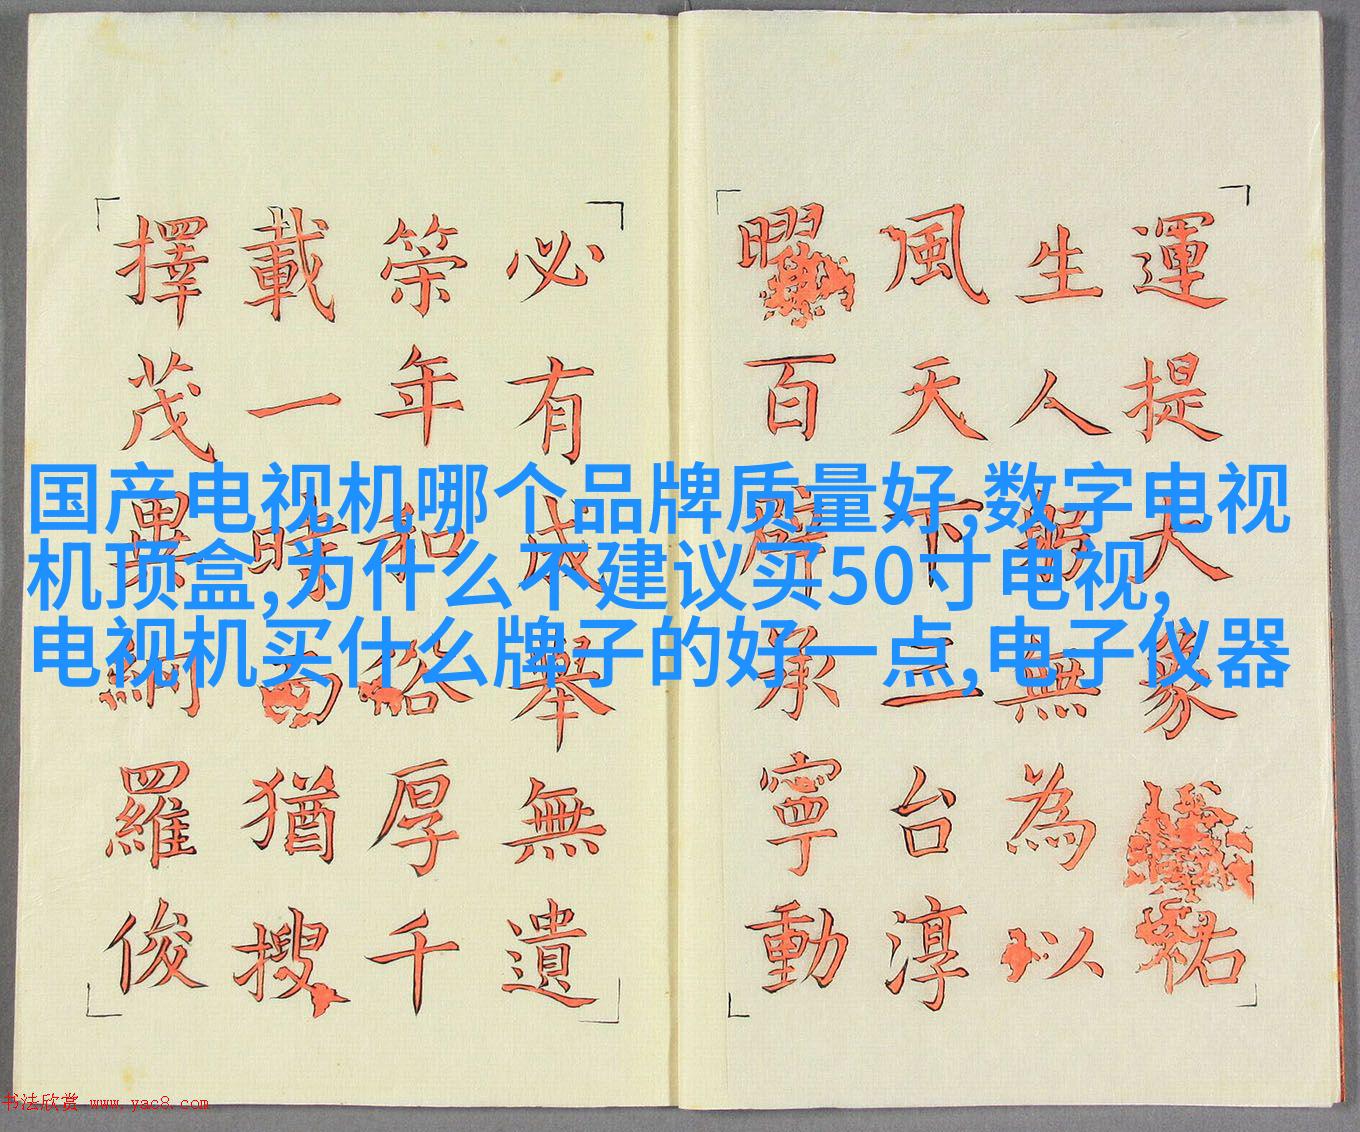 国产电视机哪个品牌质量好,数字电视
机顶盒,为什么不建议买50寸电视,
电视机买什么牌子的好一点,电子仪器
運提大象祐
生人躬無為以
風天下三台淳
曜百辟承寧動
必有成舉無遺
筞年和俗厚千
載一時而猶搜
擇茂異網羅俊
书法欣赏 www.yac8.com